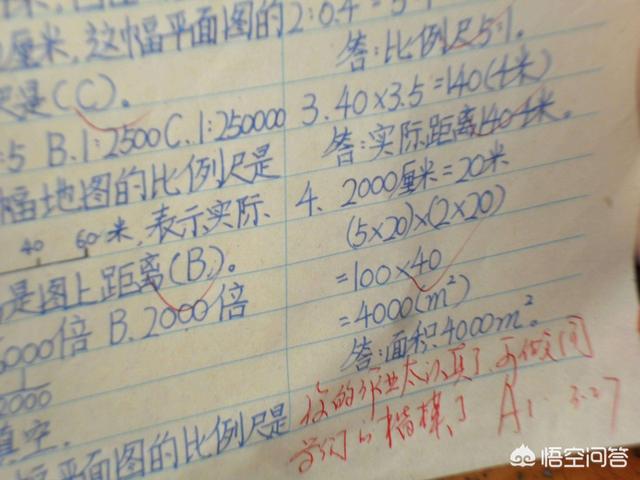 2:0.4=5:1
厘米,这幅平面图的
答:比例尺5:1。
尺是(C)。
:5 B.1:2500 C.1:250000
3.40×3.5=140(千米)
答:实际距离140千米。
幅地图的比例尺是
40 60米,表示实际
是图上距离(B)。
5000倍 B.2000倍
2000
填空.
幅平面图的比例尺是
4. 2000厘米=20米
(5×20)×(2×20)
=100×40
=4000(m²)
答:面积4000m²。
你的作业太认真了,可做同
学们的楷模了 A₁ 3.27
悟空问答